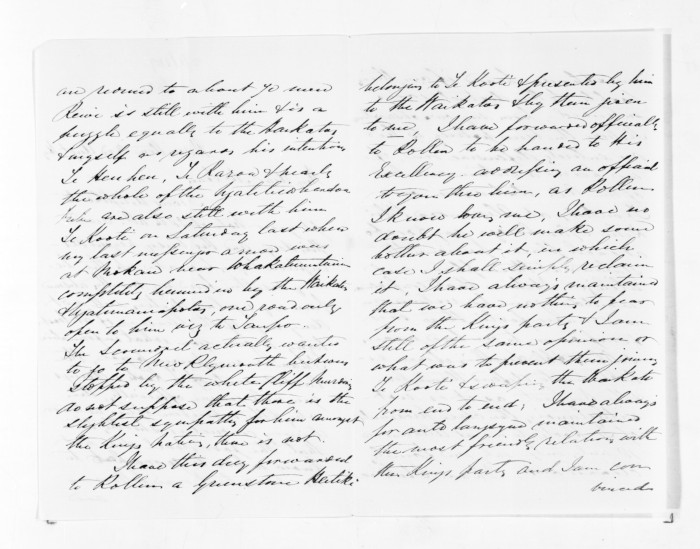 are reduced to about 70 men
Rewi is still with him & is a
puzzle equally to the Waikatos
& myself as regards his intentions
Te Heu heu, Te Rarau & nearly
the whole of the
are also still with him
Te Kooti on Saturday last when
my last messenger a man was
at Mokau near
completely hemmed in by the Waikatos
& Ngatimaniapotos, one road only
open to him viz to Taupo.
The Scoundrel actually wanted
to go to New Plymouth but was
stopped by the White Cliff Murders
do not suppose that there is the
slightest sympathy for him amongst
the Kings natives, there is not.
I have this day forwarded
to Pollen a Greenstone Heitiki
belonging to Te Kooti & presented by him
to the Waikatos & by them given
to me, I have forwarded officially
to Pollen to be handed to His
Excellency addressing an official
to you thro him, as Pollen
I know me, I have no
doubt he will make some
bother about it, in which
case I shall simply reclaim
it, I have always maintained
that we have nothing to fear
from the Kings party & I am
still of the same opinion or
what was to prevent them joining
Te Kooti & sweeping the Waikato
from end to end, I have always
for auld langsyne maintained
the most friendly relations with
the Kings party and I am con
vinced